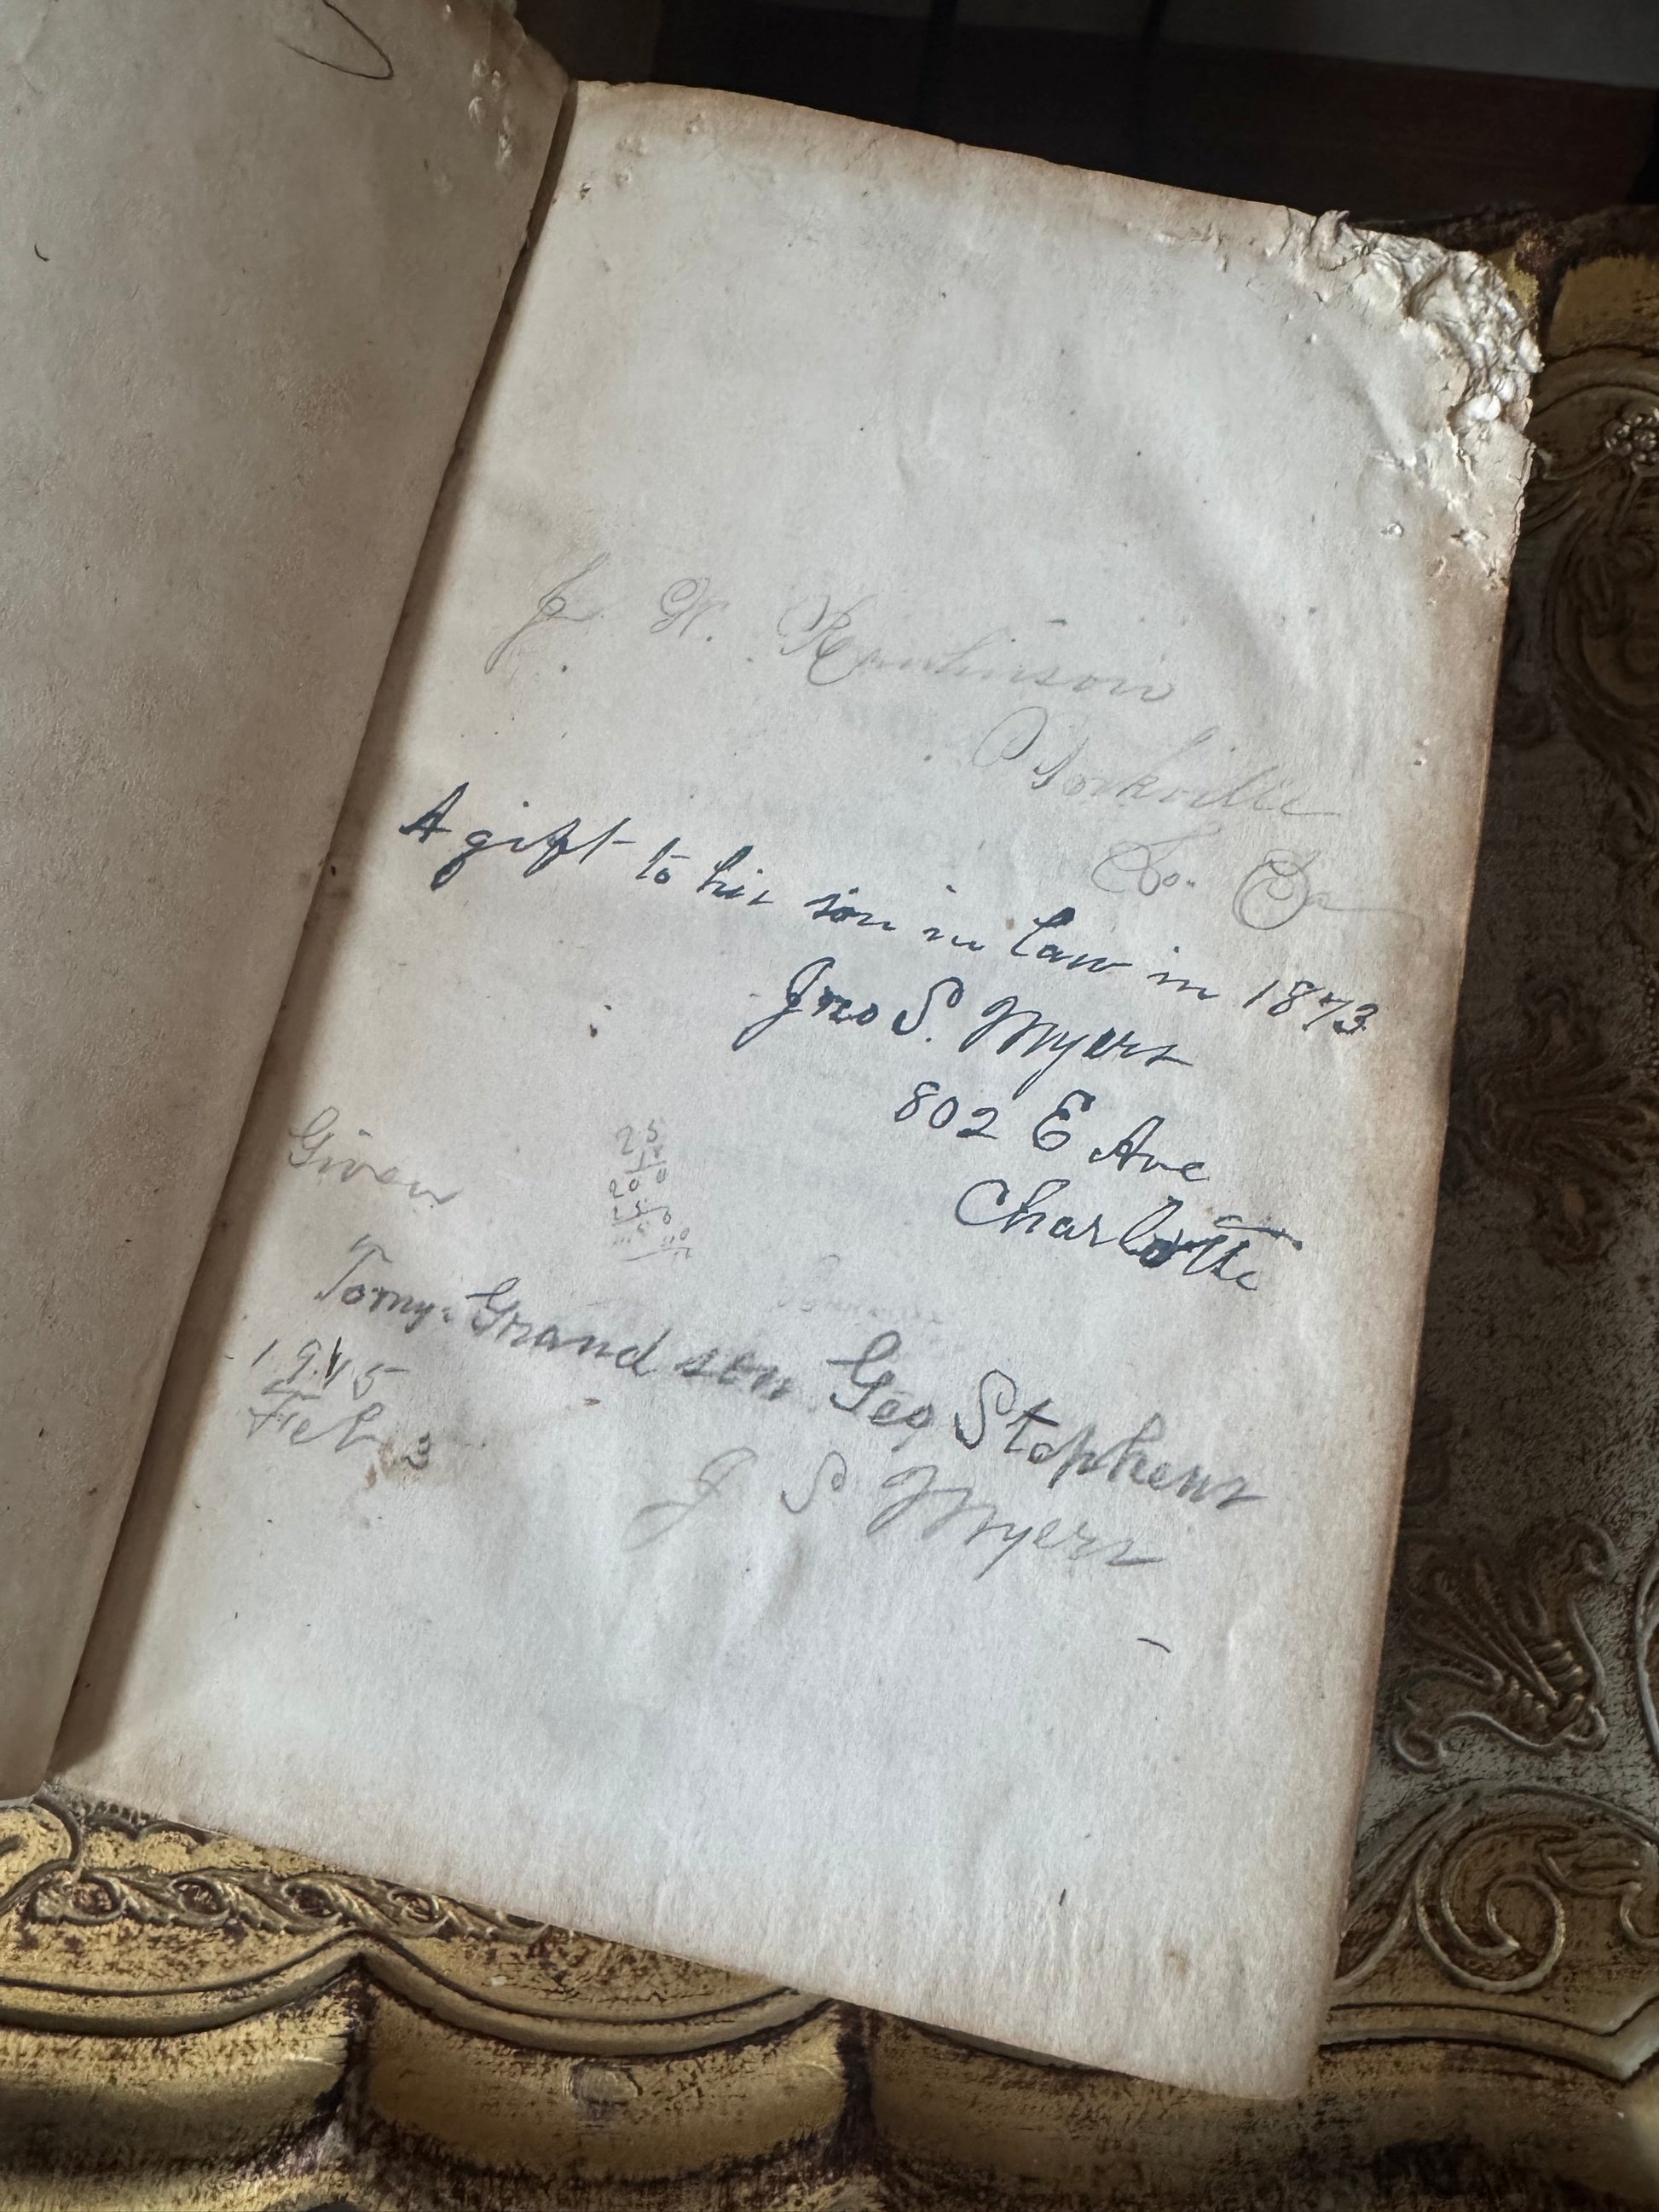 J. W. Rawlinson
Yorkville
So. Ca
A gift to his son in law in 1873
Jno S. Myers
802 E Ave
Charlotte
Given
25
200
To my Grand son Geo Stephens
1915
Feb 3
J S Myers